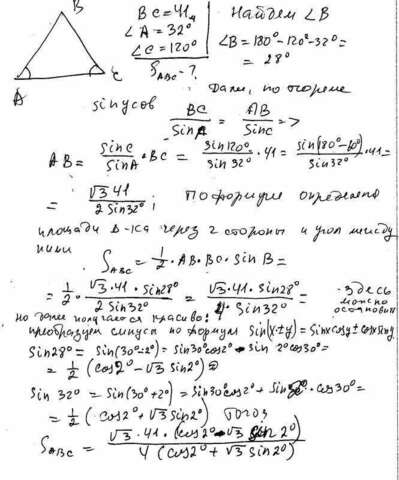 B
A
C
BC = 41
∠A = 32°
∠C = 120°
S_ABC - ?
Найдем ∠B
∠B = 180° - 120° - 32° =
= 28°
Далее, по теореме
синусов
BC/SinA = AB/SinC =>
AB = SinC/SinA · BC = Sin120°/Sin32° · 41 = Sin(180° - 60°)/Sin32° · 41 =
= √3 41/2 Sin32° ; По формуле определения
площади Δ-ка через 2 стороны и угол между
ними
S_ABC = 1/2 · AB · BC · Sin B =
= 1/2 · √3 · 41 · Sin28°/2 Sin32° = √3 · 41 · Sin28°/4 Sin32° = - здесь можно остановиться
но далее получается красиво:
преобразуем синусы по формуле Sin(x±y) = Sinx cosy ± cosx Siny
Sin28° = Sin(30° - 2°) = Sin30° cos2° - Sin 2° cos30° =
= 1/2 (cos2° - √3 Sin2°)
Sin 32° = Sin(30° + 2°) = Sin30° cos2° + Sin2° · cos30° =
= 1/2 (cos2° + √3 Sin2°) Тогда
S_ABC = √3 · 41 · (cos2° - √3 Sin 2°)/4 (cos2° + √3 Sin2°)